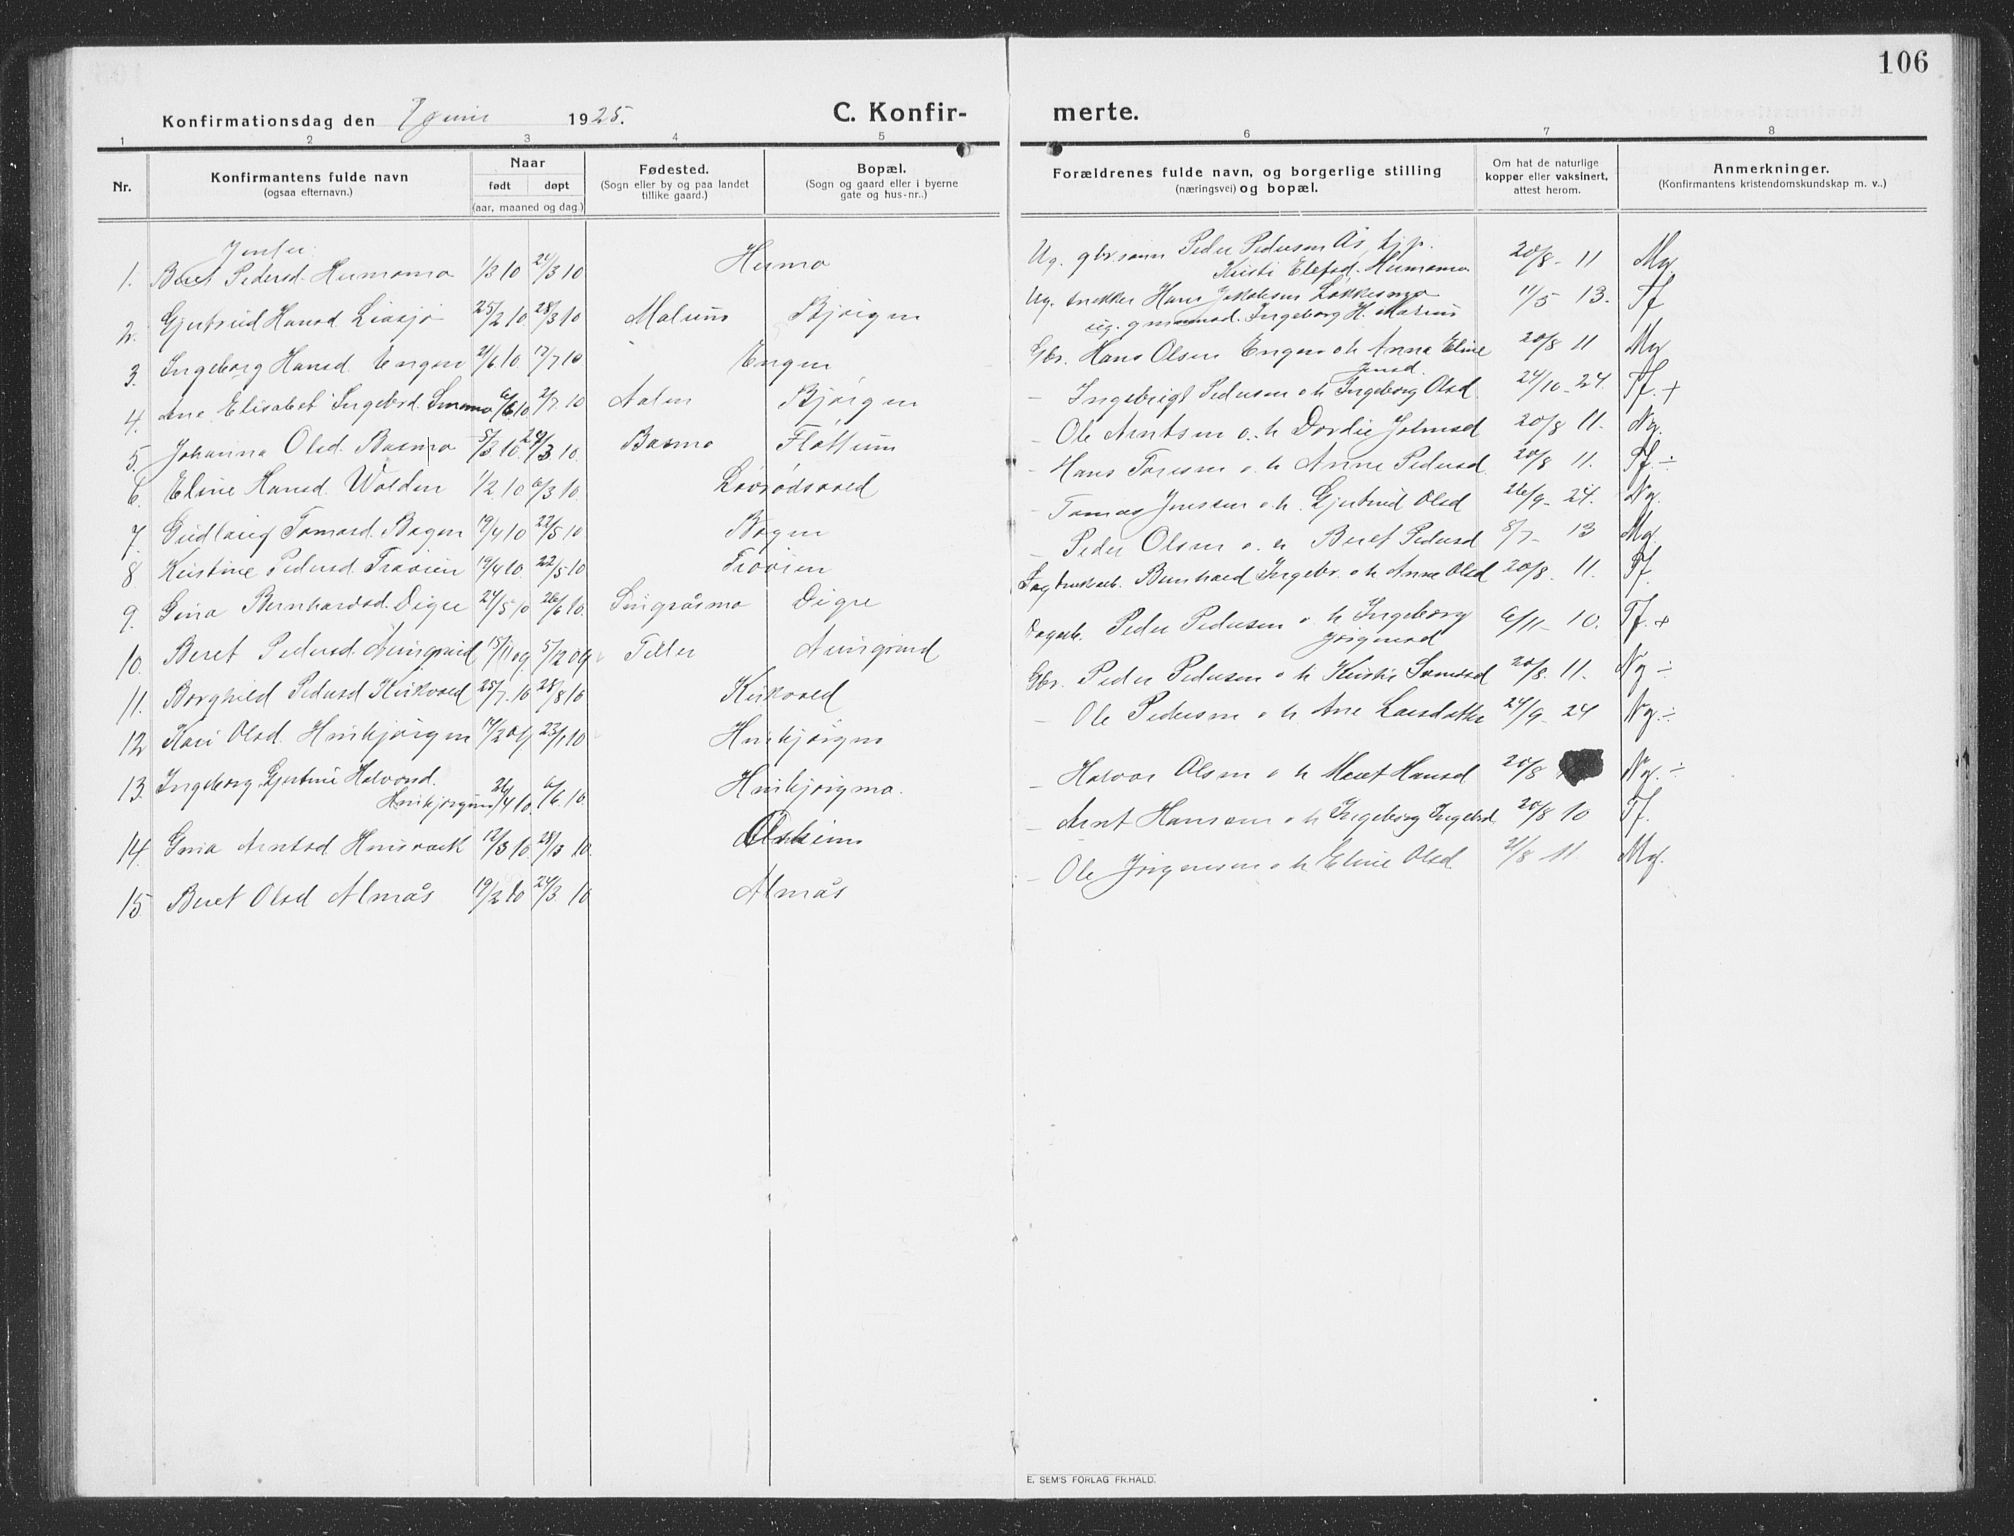 106
Konfirmationsdag den 7 juni 1925.
C. Konfirmerte.
1 2 3 4 5 6 7 8
Nr.
Konfirmantens fulde navn
(ogsaa efternavn.)
Naar
født døpt
(aar, maaned og dag.)
Fødested.
(Sogn eller by og paa landet
tillike gaard.)
Bopæl.
(Sogn og gaard eller i byerne
gate og hus-nr..)
Forældrenes fulde navn, og borgerlige stilling
(næringsvei) og bopæl.
Om hat de naturlige
kopper eller vaksinert,
attest herom.
Anmerkninger.
(Konfirmantens kristendomskundskap m. v..)
Jenter
1. Beret Pedersd. Hermomo 1/3 10 24/3 10 Hermo Ug. gbr.sønn Peder Pedersen Ås, hjp. 20/8 - 11 Mg.
Kristi Elefsd. Hermomo
2. Gjertrud Hansd. Liasjø 25/2 10 28/3 10 Malum Bjørgen Ug. snekker Hans Jakobsen Løkkesmo 11/5 13. Tf
ug. Ingeborg H. Malum
3. Ingeborg Hansd. Engen 21/6 10 17/7 10 Engen Gbr. Hans Olsen Engen o. h. Anna Eline 20/8 11 Mg
Jensd.
4. Ane Elisabet Ingebr.d. 6/6 10 2/7 10 Aalen Bjørgen - Ingebrigt Pedersen o. h. Ingeborg Olsd. 24/10 - 24. Tf. +
5. Johanna Olsd. Basmo 5/3 10. 24/3 10. Basmo Fløttum - Ole Arntsen o. h. Dordie Johnsd 20/8 11. Ng.
6. Eline Hansd. Wolden 1/2 10 6/3 10. - Hans Toresen o. h. Anne Pedersd. 20/8 11. Tf. ÷
7. Gudlaug Tomasd. Bogen 19/4 10 22/5 10 Bogen - Tomas Jensen o. h. Gjertrud Olsd 26/9 - 24. Ng.
8. Kristine Pedersd. Trøøien 19/4 10. 22/5 10 Trøøien - Peder Olsen o. h. Beret Pedersd 8/7 - 13 Mg.
9. Gina Bernhardsd. Digre 24/5 10 26/6 10. Singsåsmo Digre Bernhard Ingebr. o. h. Anne Olsd 20/8. 11. Tf.
10. Beret Pedersd. Aunegrind 15/11 09. 5/12 09 Tiller Aunegrind Dagarb. Peder Pedersen o. h. Ingeborg 6/11 - 10. Tf. +
Jørgensd
11. Borghild Pedersd Kirkvold 25/7. 10 28/8 10 Kirkvold Gbr. Peder Pedersen o. h. Kristie Simensd 20/8. 11. Ng ÷
12 Kari Olsd. Hinbjørgen 23/1 10 Hinbjørgen - Ole Pedersen o. h. Ane Larsdatter 24/9 - 24 Ng. ÷
13. Ingeborg Gjertine Halvorsd. 26/4 10. 6/6. 10. Hinbjørgmo. - Halvor Olsen o. h. Meret Hansd 20/8 Ng. ÷
Hinbjørgmo
14. Gina Arntsd 12/3 10. 28/3 10. - Arnt Hansen o. h. Ingeborg Ingebr.d. 20/8 10 Tf.
15 Beret Olsd Almås 19/2 10 24/3. 10 Almås - Ole Jørgensen o. h. Eline Olsd 21/8 11. Mg.
E. SEM'S FORLAG FR.HALD.